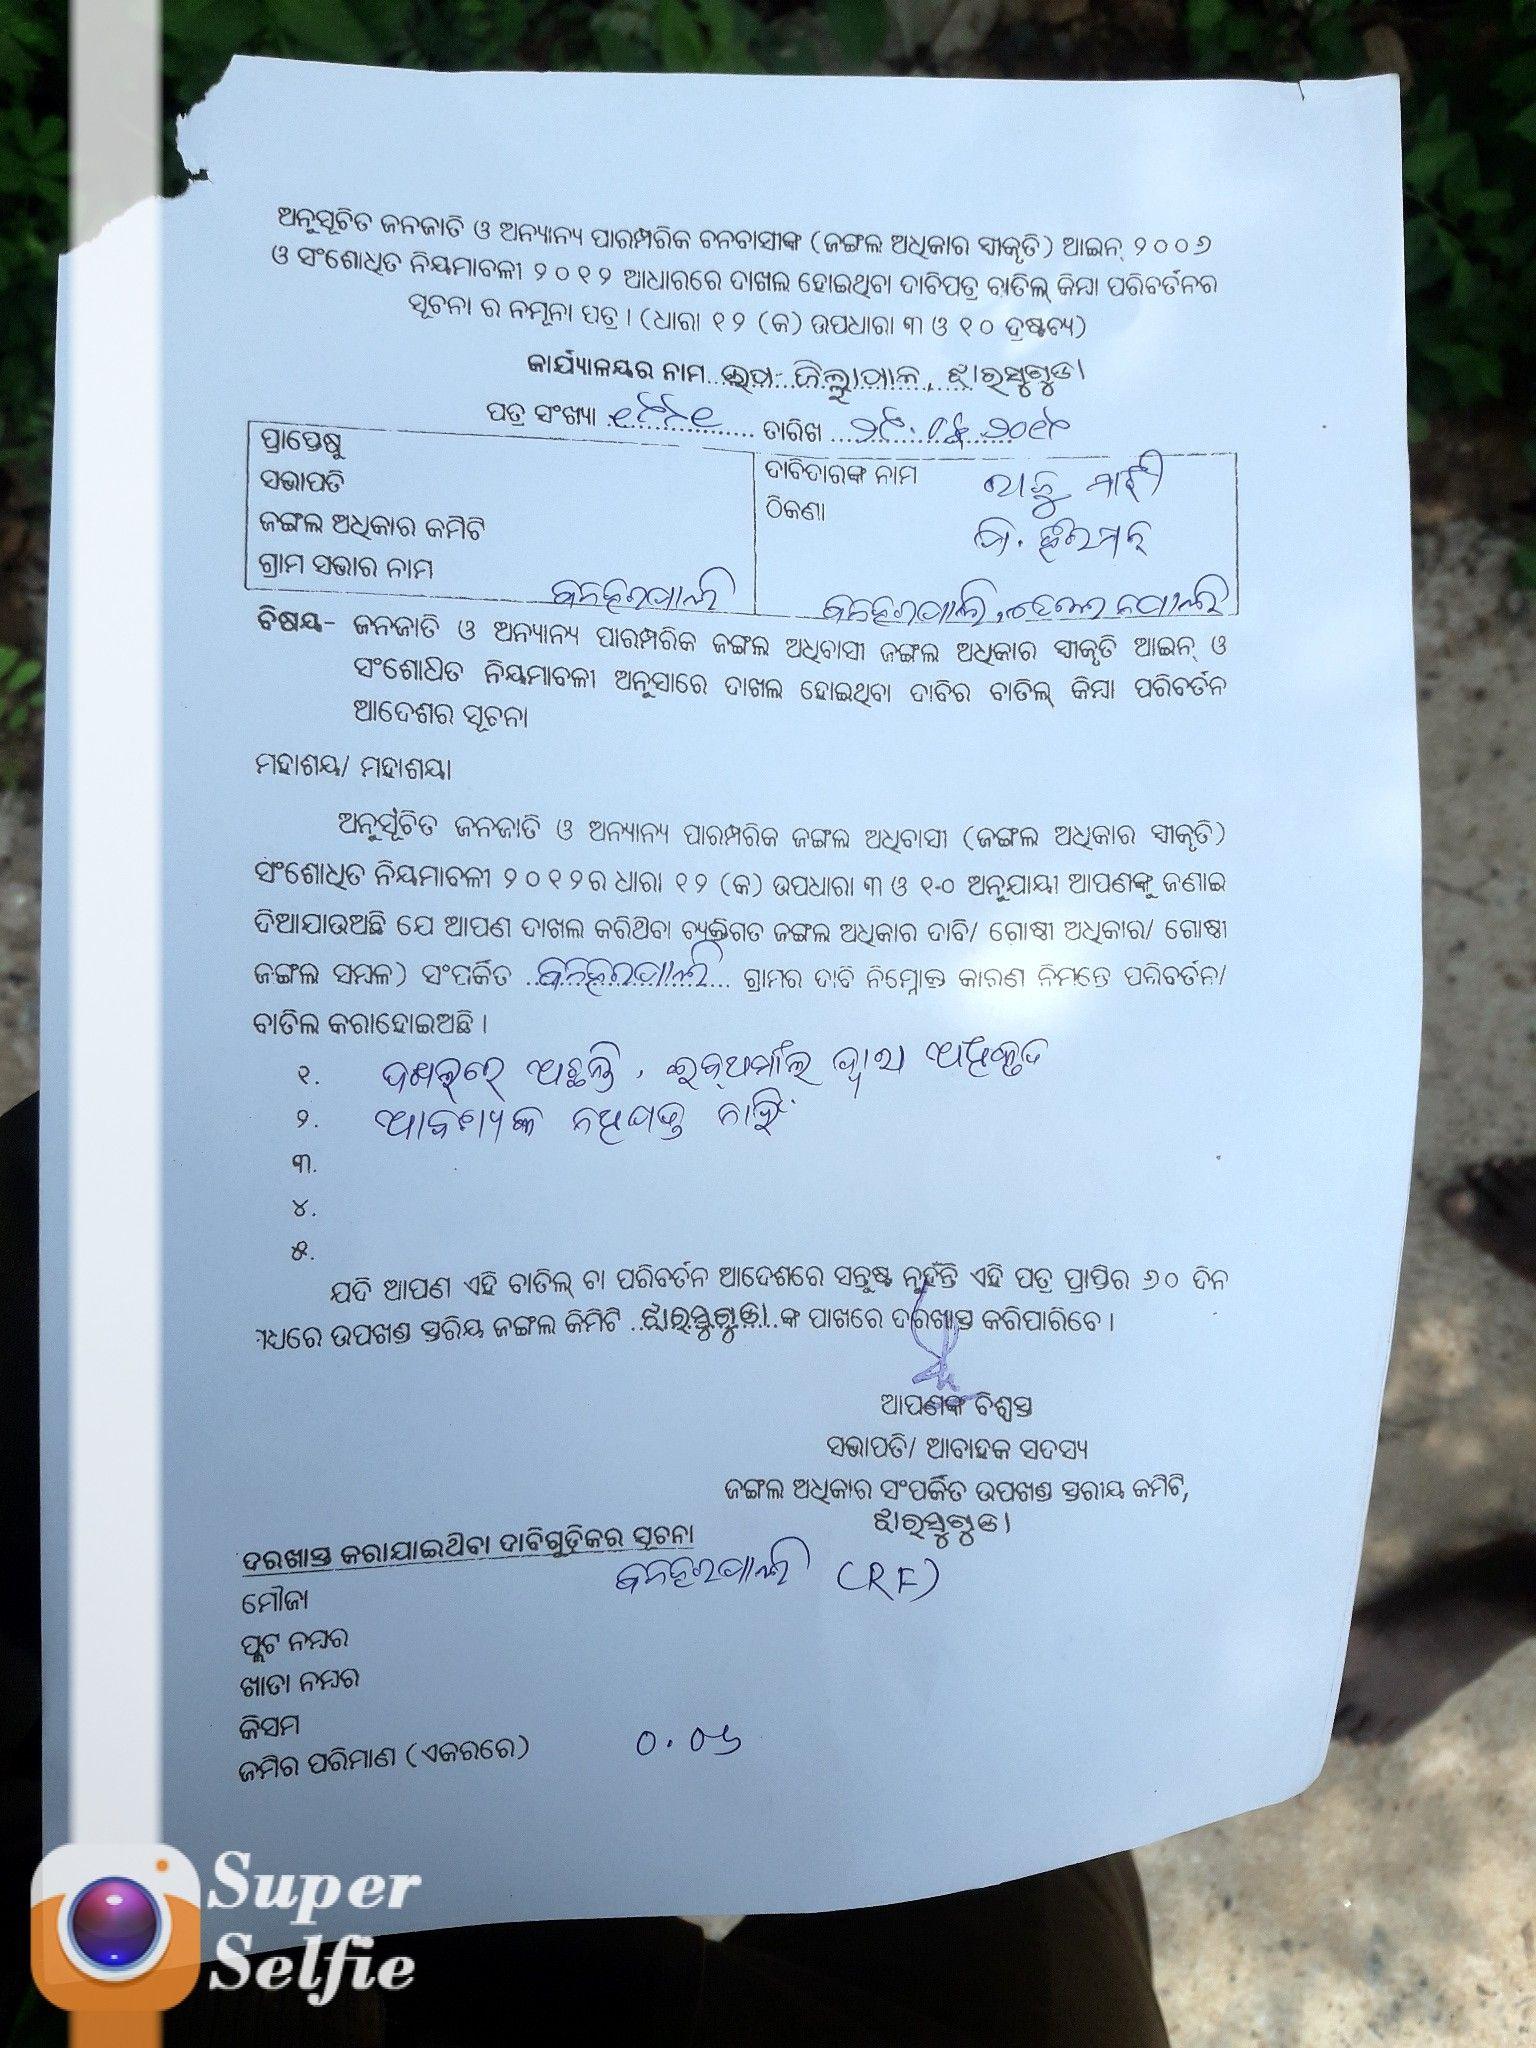 ଅନୁସୂଚିତ ଜନଜାତି ଓ ଅନ୍ୟାନ୍ୟ ପାରମ୍ପରିକ ବନବାସୀଙ୍କ (ଜଙ୍ଗଲ ଅଧିକାର ସ୍ବୀକୃତି) ଆଇନ୍ ୨୦୦୬
ଓ ସଂଶୋଧିତ ନିୟମାବଳୀ ୨୦୧୨ ଆଧାରରେ ଦାଖଲ ହୋଇଥିବା ଦାବିପତ୍ର ବାତିଲ୍ କିମ୍ବା ପରିବର୍ତନର
ସୂଚନା ର ନମୂନା ପତ୍ର। (ଧାରା ୧୨ (କ) ଉପଧାରା ୩ ଓ ୧୦ ଦ୍ରଷ୍ଟବ୍ୟ)
କାର୍ଯ୍ୟାଳୟର ନାମ ଉପ- ଜିଲ୍ଲାପାଳ, ଝାରସୁଗୁଡା
ପତ୍ର ସଂଖ୍ୟା ତାରିଖ
ପ୍ରାପ୍ତେଷୁ
ସଭାପତି
ଜଙ୍ଗଲ ଅଧିକାର କମିଟି
ଗ୍ରାମ ସଭାର ନାମ
ବନହରପାଲି
ଦାବିଦାରଙ୍କ ନାମ
ଠିକଣା
ବନହରପାଲି,
ବିଷୟ- ଜନଜାତି ଓ ଅନ୍ୟାନ୍ୟ ପାରମ୍ପରିକ ଜଙ୍ଗଲ ଅଧିବାସୀ ଜଙ୍ଗଲ ଅଧିକାର ସ୍ବୀକୃତି ଆଇନ୍ ଓ
ସଂଶୋଧିତ ନିୟମାବଳୀ ଅନୁସାରେ ଦାଖଲ ହୋଇଥିବା ଦାବିର ବାତିଲ୍ କିମ୍ବା ପରିବର୍ତନ
ଆଦେଶର ସୂଚନା
ମହାଶୟ/ ମହାଶୟା
ଅନୁସୂଚିତ ଜନଜାତି ଓ ଅନ୍ୟାନ୍ୟ ପାରମ୍ପରିକ ଜଙ୍ଗଲ ଅଧିବାସୀ (ଜଙ୍ଗଲ ଅଧିକାର ସ୍ବୀକୃତି)
ସଂଶୋଧିତ ନିୟମାବଳୀ ୨୦୧୨ର ଧାରା ୧୨ (କ) ଉପଧାରା ୩ ଓ ୧୦ ଅନୁଯାୟୀ ଆପଣଙ୍କୁ ଜଣାଇ
ଦିଆଯାଉଅଛି ଯେ ଆପଣ ଦାଖଲ କରିଥିବା ବ୍ୟକ୍ତିଗତ ଜଙ୍ଗଲ ଅଧିକାର ଦାବି/ ଗୋଷ୍ଠୀ ଅଧିକାର/ ଗୋଷ୍ଠୀ
ଜଙ୍ଗଲ ସମ୍ବଳ) ସଂପର୍କିତ ବନହରପାଲି ଗ୍ରାମର ଦାବି ନିମ୍ନୋକ୍ତ କାରଣ ନିମନ୍ତେ ପରିବର୍ତନ/
ବାତିଲ କରାହୋଇଅଛି।
୧. ଦଖଲରେ ଅଛନ୍ତି, ଦ୍ୱାରା
୨. ଆବଶ୍ୟକ ନାହିଁ
୩.
୪.
୫.
ଯଦି ଆପଣ ଏହି ବାତିଲ୍ ବା ପରିବର୍ତନ ଆଦେଶରେ ସନ୍ତୁଷ୍ଟ ନୁହଁନ୍ତି ଏହି ପତ୍ର ପ୍ରାପ୍ତିର ୬୦ ଦିନ
ଉପଖଣ୍ଡ ସ୍ତରିୟ ଜଙ୍ଗଲ କିମିଟି ଝାରସୁଗୁଡା ଙ୍କ ପାଖରେ ଦରଖାସ୍ତ କରିପାରିବେ।
ଆପଣଙ୍କ ବିଶ୍ୱସ୍ତ
ସଭାପତି/ ଆବାହକ ସଦସ୍ୟ
ଜଙ୍ଗଲ ଅଧିକାର ସଂପର୍କିତ ଉପଖଣ୍ଡ ସ୍ତରୀୟ କମିଟି,
ଝାରସୁଗୁଡା
ଦରଖାସ୍ତ କରାଯାଇଥିବା ଦାବିଗୁଡ଼ିକର ସୂଚନା
ମୌଜା ବନହରପାଲି (RF)
ପ୍ଲଟ ନମ୍ବର
ଖାତା ନମ୍ବର
କିସମ
ଜମିର ପରିମାଣ (ଏକରରେ) ୦.୦୬
Super
Selfie